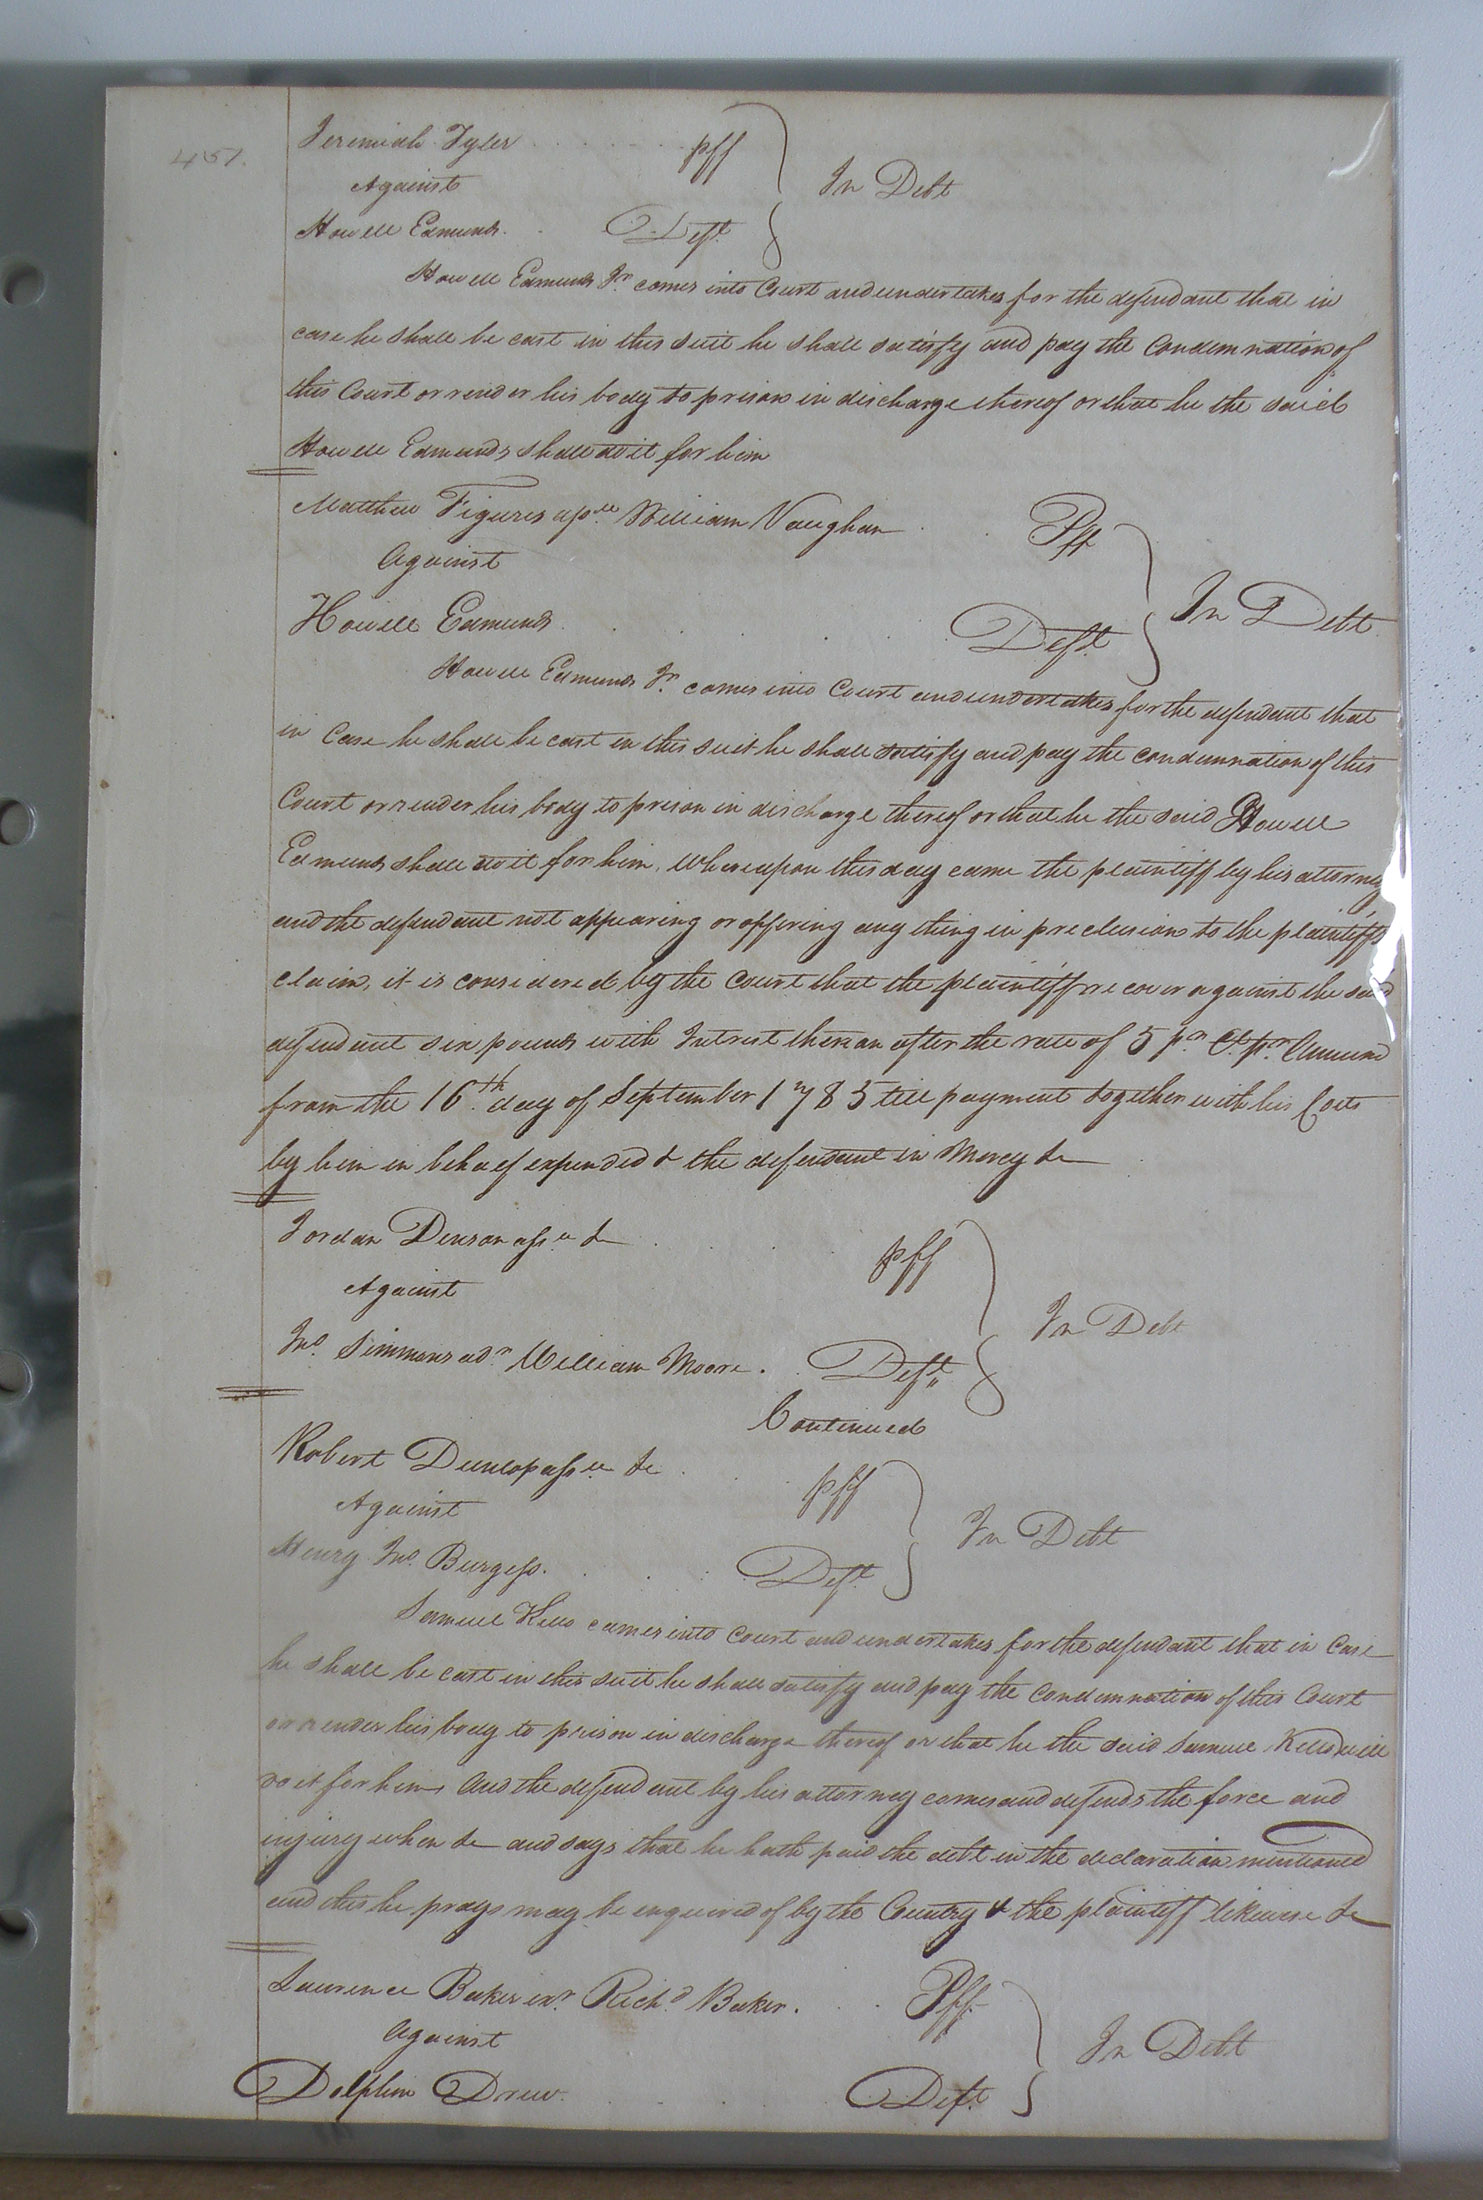 451.
Jeremiah Tyler . . . . . . . pff
Against
In Debt
Howell Edmunds . . Deft.
Howell Edmunds Jr. comes into Court and undertakes for the defendant that in
case he shall be cast in this suit he shall satisfy and pay the Condemnation of
this Court or render his body to prison in discharge thereof or that he the said
Howell Edmunds shall do it for him
Matthew Figures William Vaughan . . Pff
Against
In Debt
Howell Edmunds . . . . . Deft.
Howell Edmunds Jr. comes into Court and undertakes for the defendant that
in Case he shall be cast in this suit he shall satisfy and pay the condemnation of this
Court or render his body to prison in discharge thereof or that he the said Howell
Edmunds shall do it for him, Whereupon this day came the plaintiff by his attorney
and the defendant not appearing or offering any thing in preclusion to the plaintiffs
claim, it is considered by the Court that the plaintiff recover against the said
defendant six pounds with Intrest thereon after the rate of 5 pr. Ct. pr. Annum
from the 16th. day of September 1785 till payment together with his Costs
by him in behalf expended & the defendant in Mercy &c
Jordan Denson assee &c . . . pff
Against
In Debt
Jno. Simmons adr. William Moore . . Deft.
Continued
Robert Dunlop assee &c . . . pff
Against
In Debt
Henry Jno. Burgess . . . . Deft.
Samuel Kello comes into Court and undertakes for the defendant that in Case
he shall be cast in this suit he shall satisfy and pay the Condemnation of this Court
or render his body to prison in discharge thereof or that he the said Samuel Kello will
do it for him, And the defendant by his attorney comes and defends the force and
injury when &c and says that he hath paid the debt in the declaration mentioned
and this he prays may be enquired of by the Country & the plaintiff likewise &c
Lawrence Baker exr. Richd. Baker . . . Pff.
Against
In Debt
Dolphin Drew . . . . Deft.